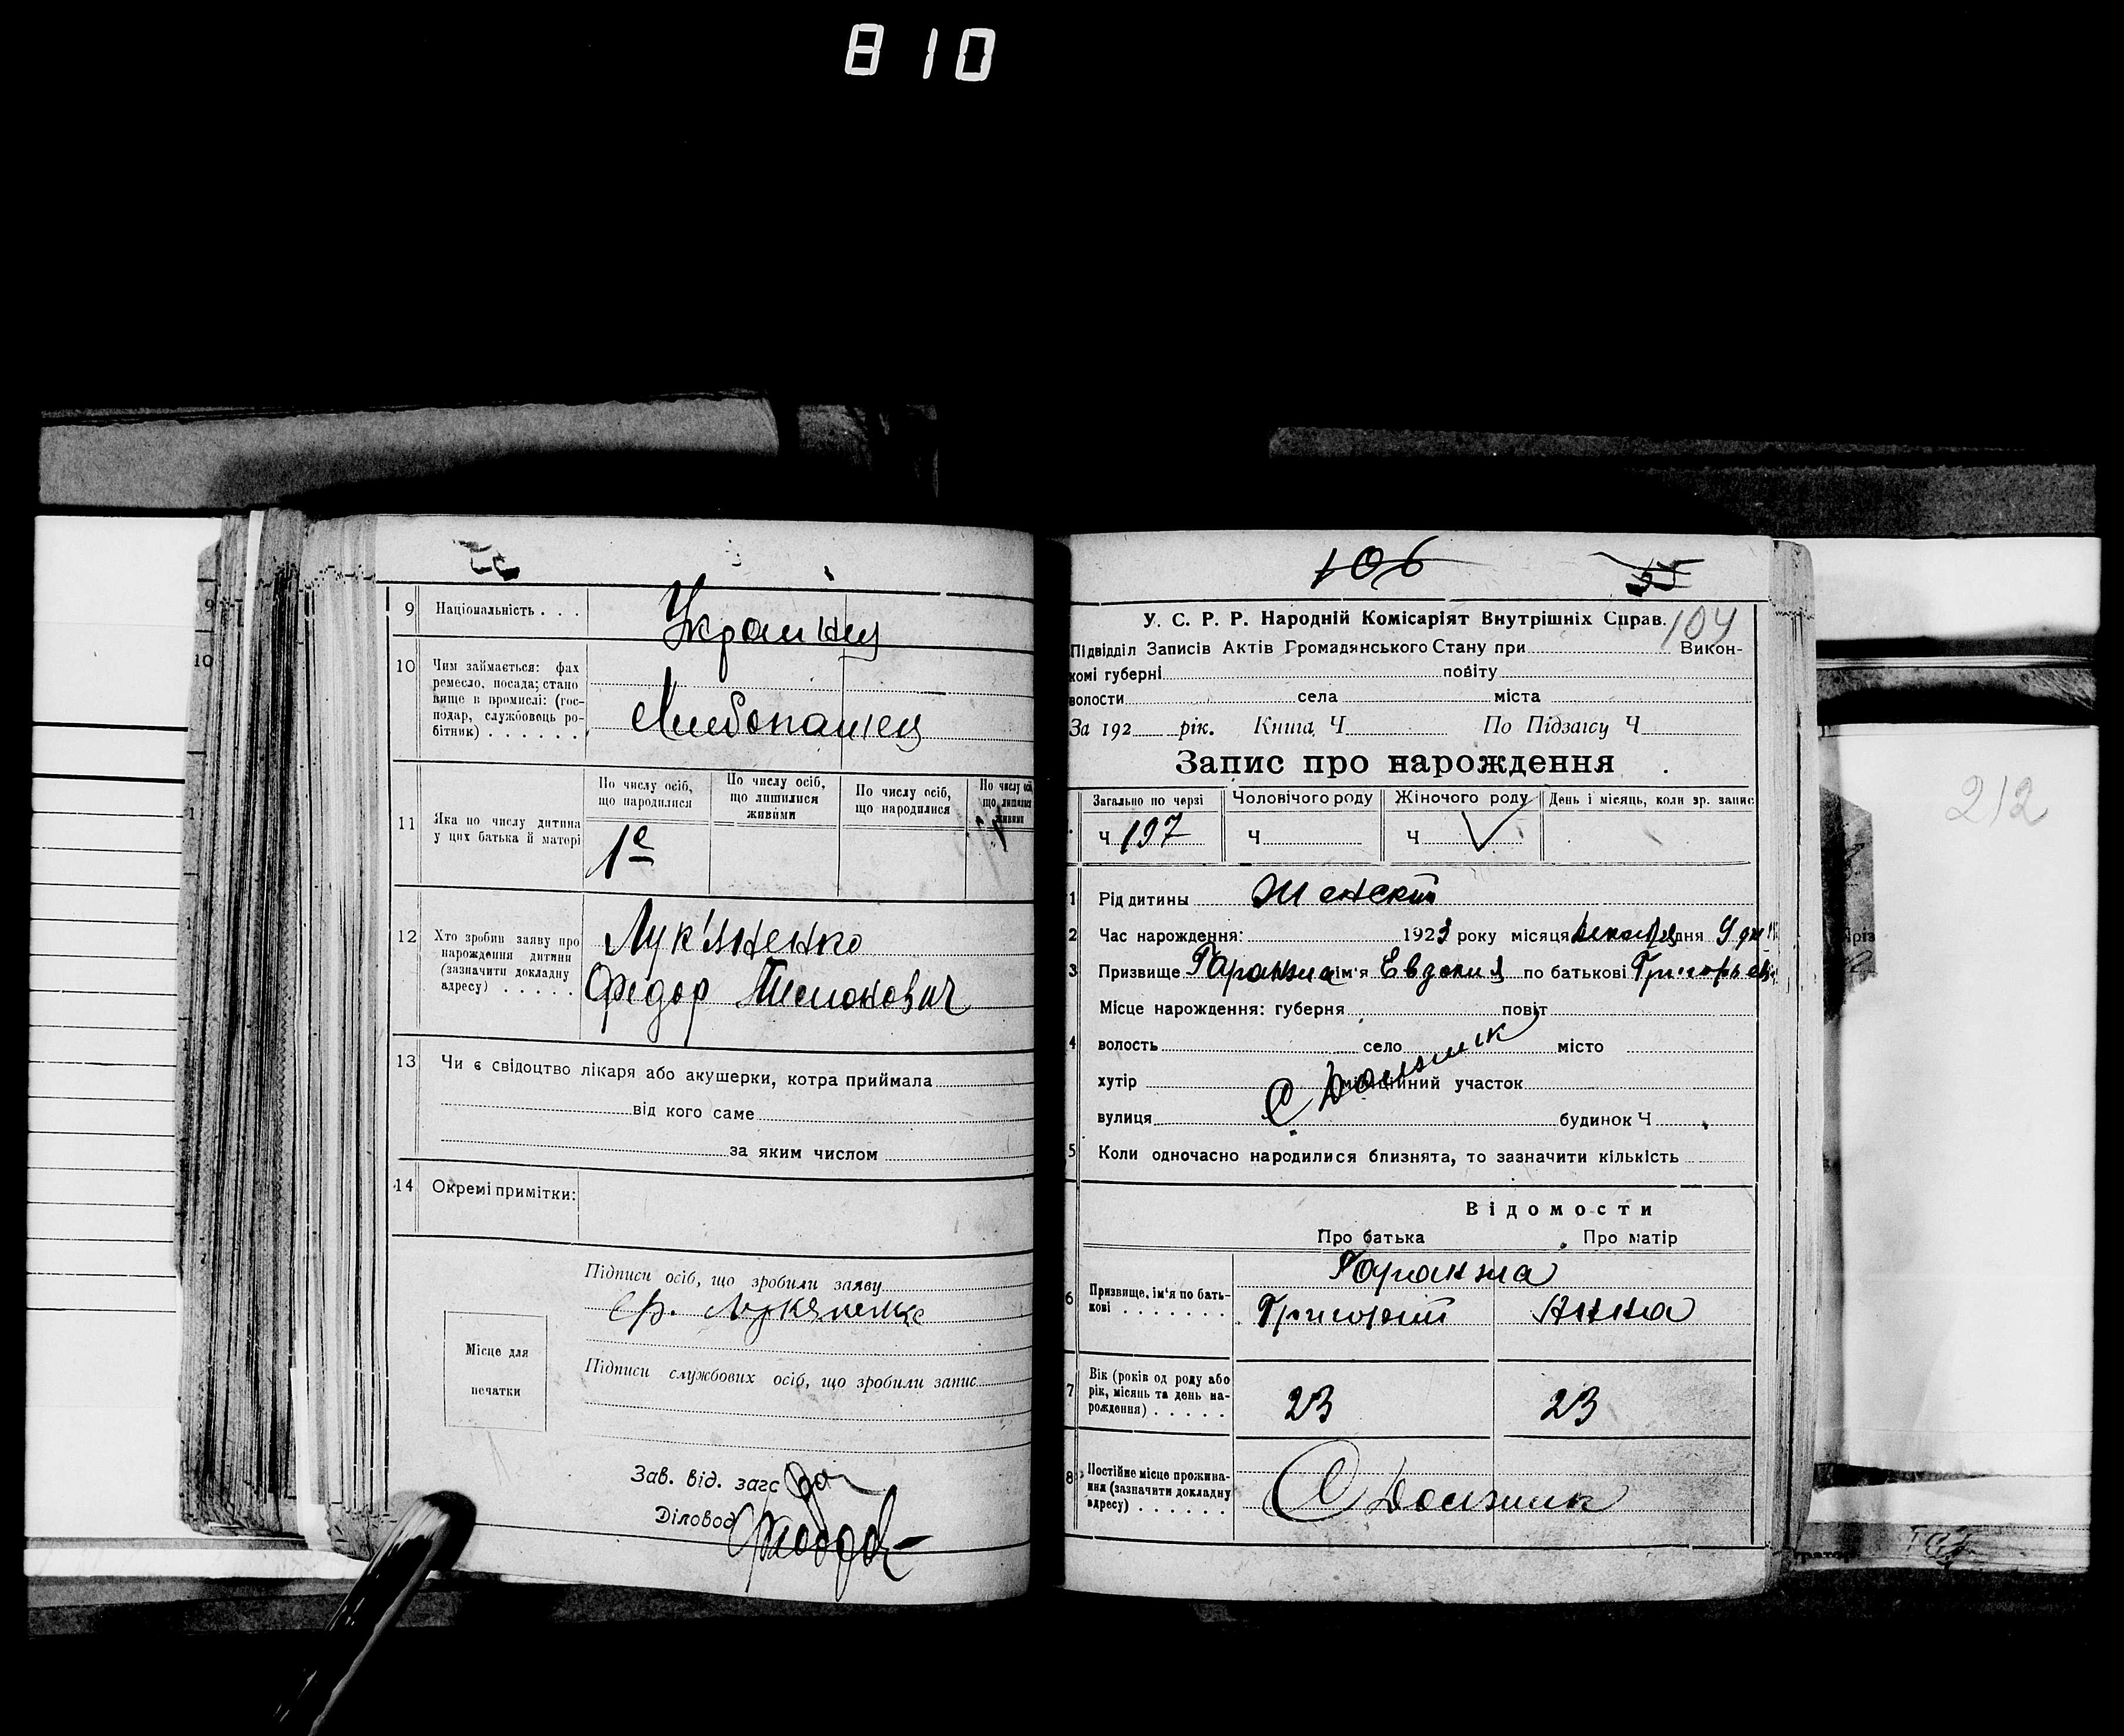 810
9 Національність . . .
Українці
10 Чим займається: фах
ремесло, посада; стано
вище в промислі: (гос-
подар, службовець ро-
бітник) . . . . . . .
11 Яка по числу дитина
у цих батька й матері
По числу осіб,
що народилися
По числу осіб,
що лишилися
живими
По числу осіб,
що народилися
1е
12 Хто зробив заяву про
нарождення дитини
(зазначити докладну
адресу) . . . . .
Лук'яненко
Федор
13 Чи є свідоцтво лікаря або акушерки, котра приймала
від кого саме
за яким числом
14 Окремі примітки:
Підписи осіб, що зробили заяву
Ф. Лукяненко
Місце для
печатки
Підписи службових осіб, що зробили запис
Зав. від. загс
Діловод
106
104
У. С. Р. Р. Народній Комісаріят Внутрішніх Справ.
Підвідділ Записів Актів Громадянського Стану при Викон-
комі губерні повіту
волости села міста
За 192 рік. Книга Ч По Підзагсу Ч
Запис про нарождення
Загально по черзі Чоловічого роду Жіночого роду День і місяць, коли зр. запис
Ч 197 Ч Ч
1 Рід дитины Женский
2 Час нарождення: 1923 року місяця дня 9
3 Призвище Таранжа ім'я Евдокия по батькові
Місце нарождення: губерня повіт
4 волость село місто
хутір участок
С Должик
вулиця будинок Ч
5 Коли одночасно народилися близнята, то зазначити кількість
Відомости
Про батька Про матір
6 Призвище, ім'я по бать-
кові . . . . . . .
Таранжа
Григорий Анна
7 Вік (років од роду або
рік, місяць та день на-
рождення) . . . . .
23 23
8 Постійне місце прожива-
ння (зазначити докладну
адресу) . . . . .
С Должик
212